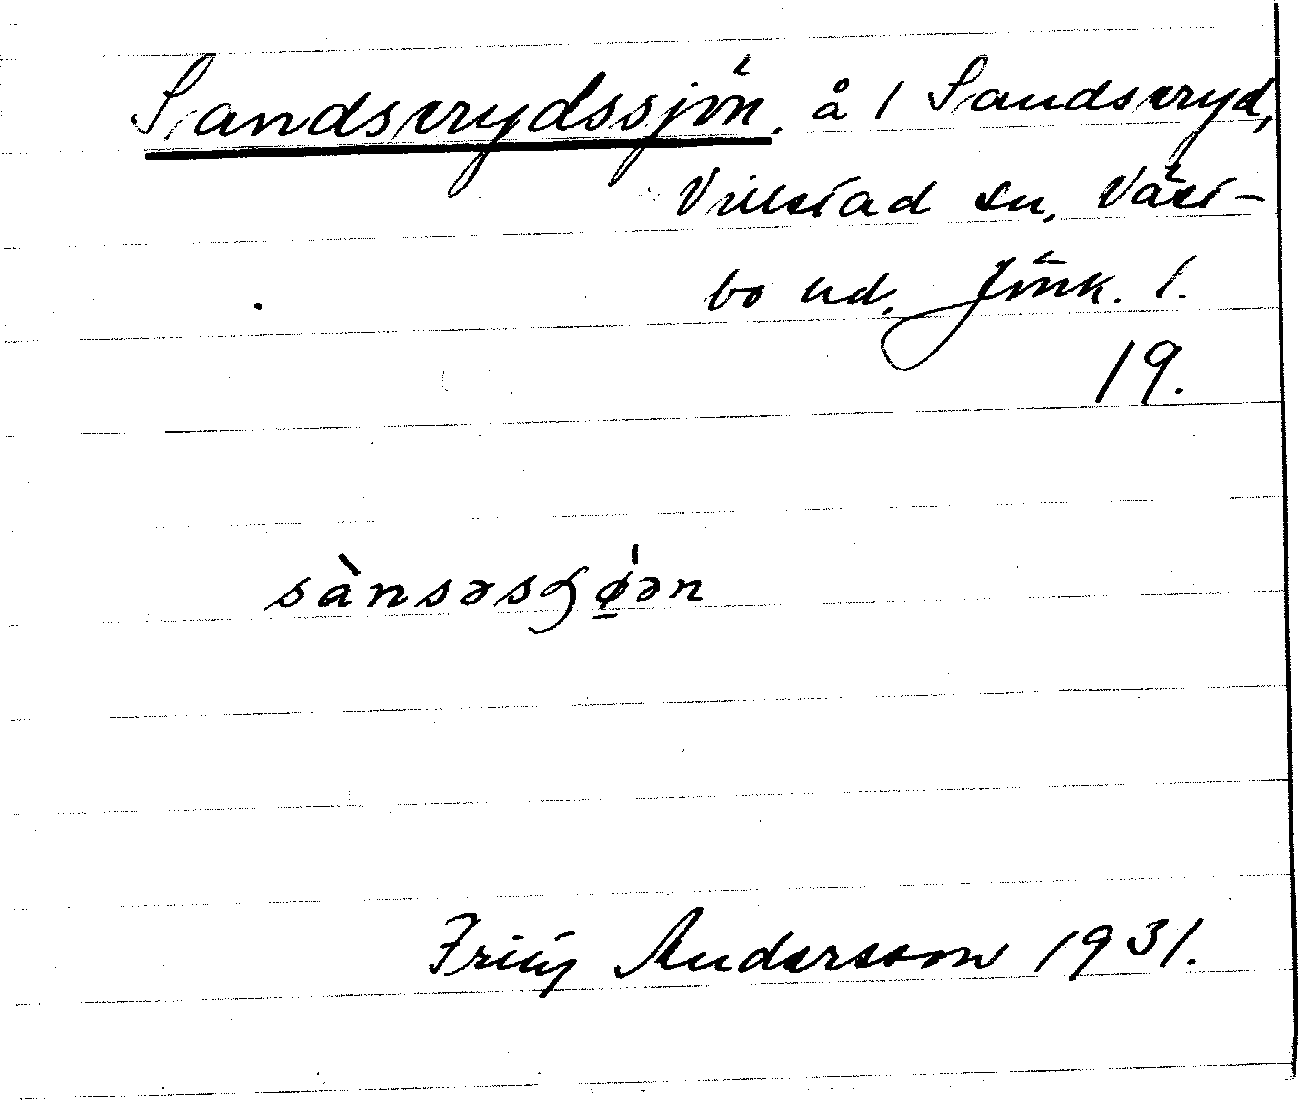 Sandserydssjön, å 1 Sandseryd,
Villstad sn, Väst-
bo hd, Jönk. l.
19.
sànsəsʃǿ̱ən
Fritz Andersson 1931.